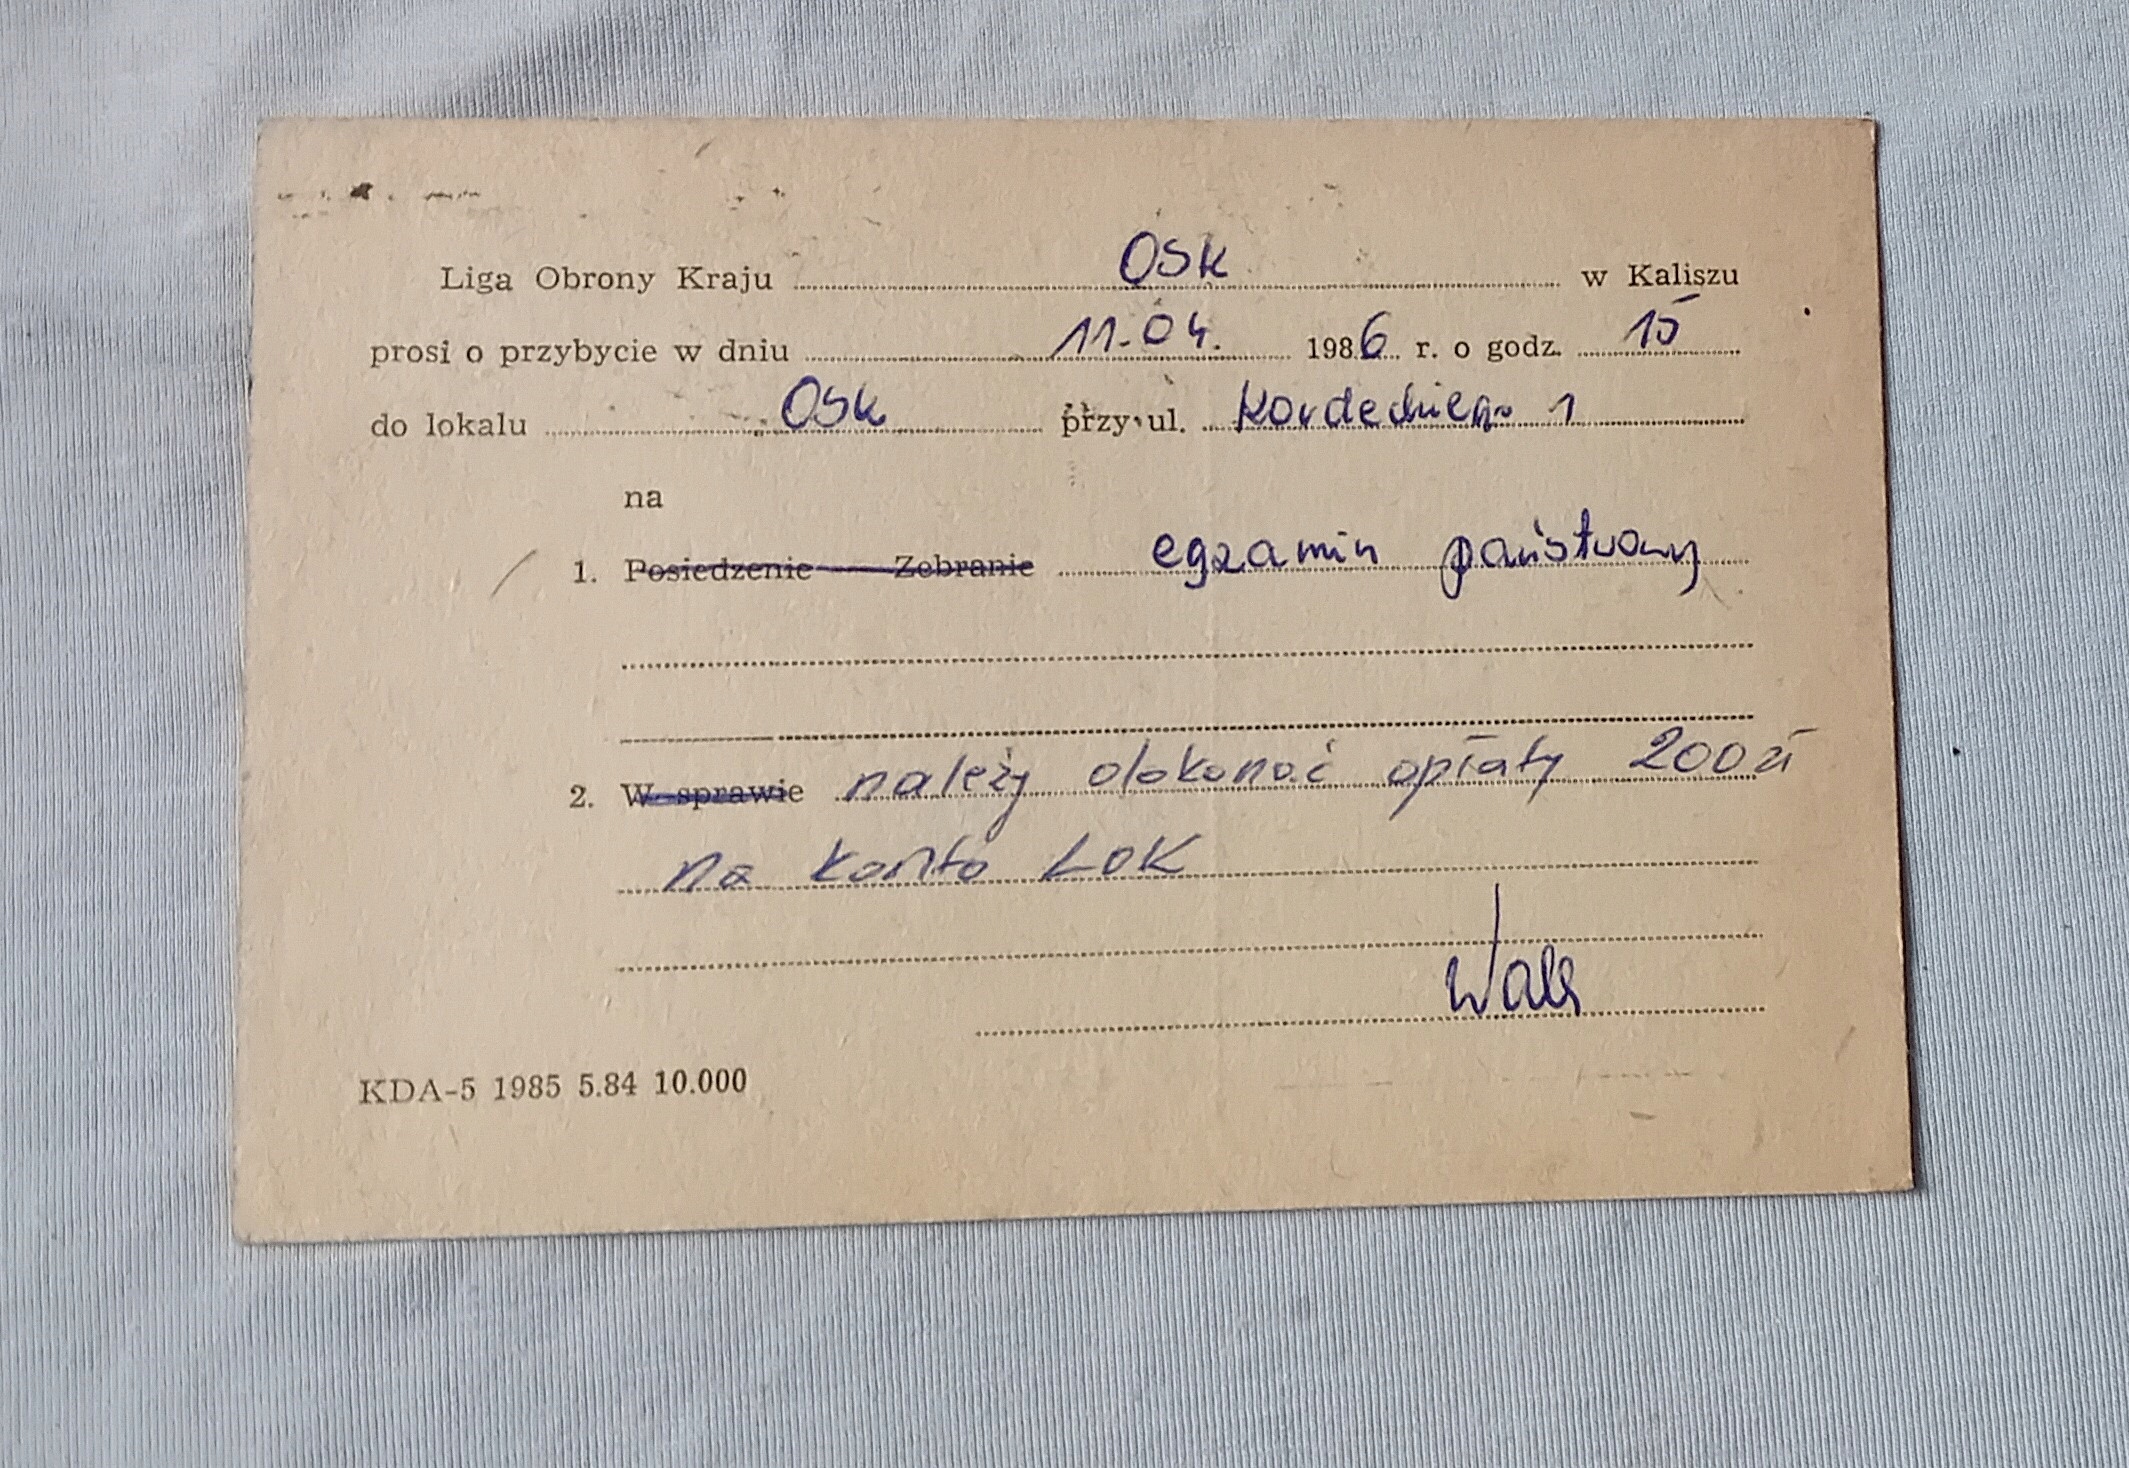 Liga Obrony Kraju OSK w Kaliszu
prosi o przybycie w dniu 11.04. 1986 r. o godz. 15
do lokalu OSK przy ul. Kordeckiego 1
na
1. Posiedzenie — Zebranie egzamin państwowy
2. W sprawie należy dokonać opłaty 200 zł
na konto LOK
KDA-5 1985 5.84 10.000